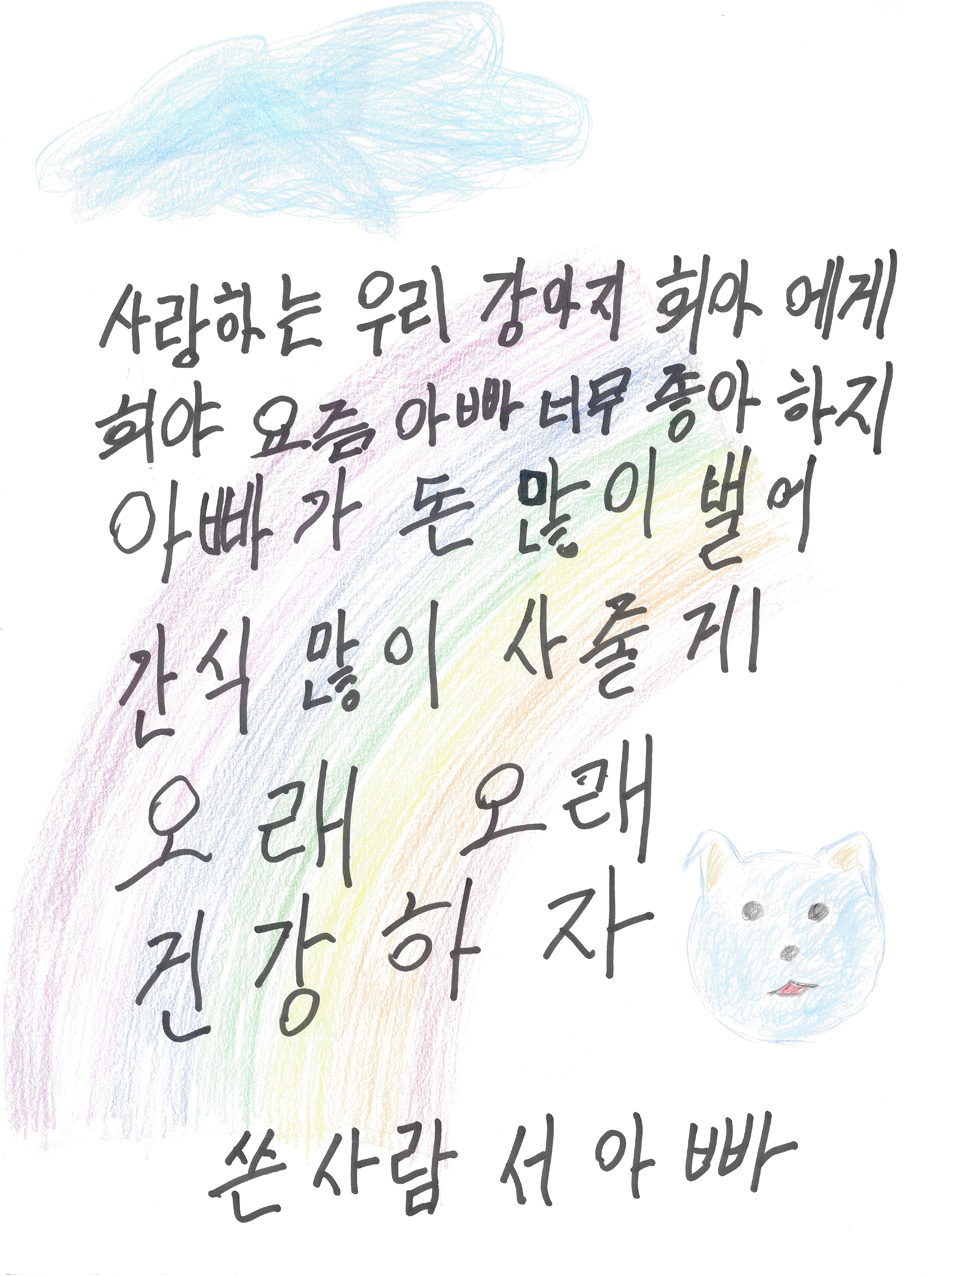 사랑하는 우리 강아지 희아 에게
희야 요즘 아빠 너무 좋아 하지
아빠가 돈 많이 벌어
간식 많이 사줄게
오래 오래
건강하자
쓴사람 서아빠